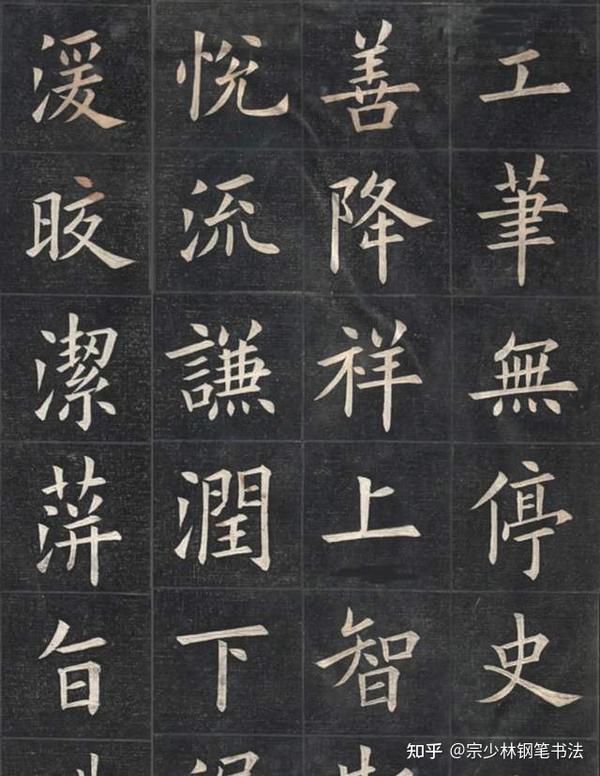 工筆無停史
善降祥上智
悦流謙潤下
湲晈潔蓱旨
知乎 @宗少林钢笔书法